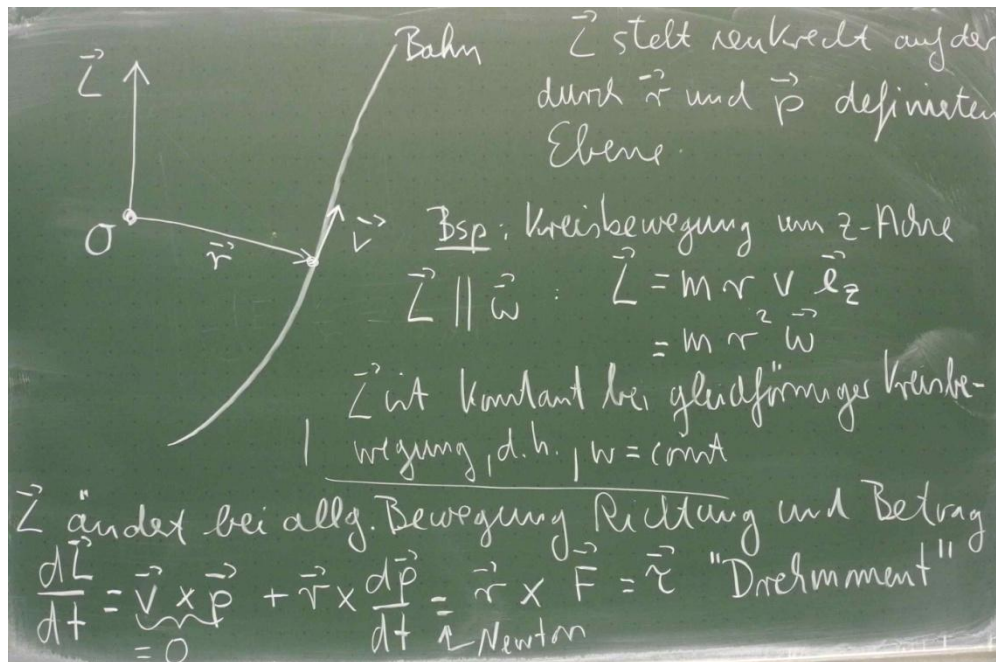 L⃗
O
r⃗
v⃗
Bahn
L⃗ steht senkrecht auf der
durch r⃗ und p⃗ definierten
Ebene.
Bsp: Kreisbewegung um z-Achse
L⃗ || ω⃗ : L⃗ = m r v e⃗_z
= m r² ω⃗
L⃗ ist konstant bei gleichförmiger Kreisbe-
wegung, d.h., ω = const
L⃗ ändert bei allg. Bewegung Richtung und Betrag
dL⃗/dt = v⃗ × p⃗ + r⃗ × dp⃗/dt = r⃗ × F⃗ = τ⃗ "Drehmoment"
= 0 ↑ Newton